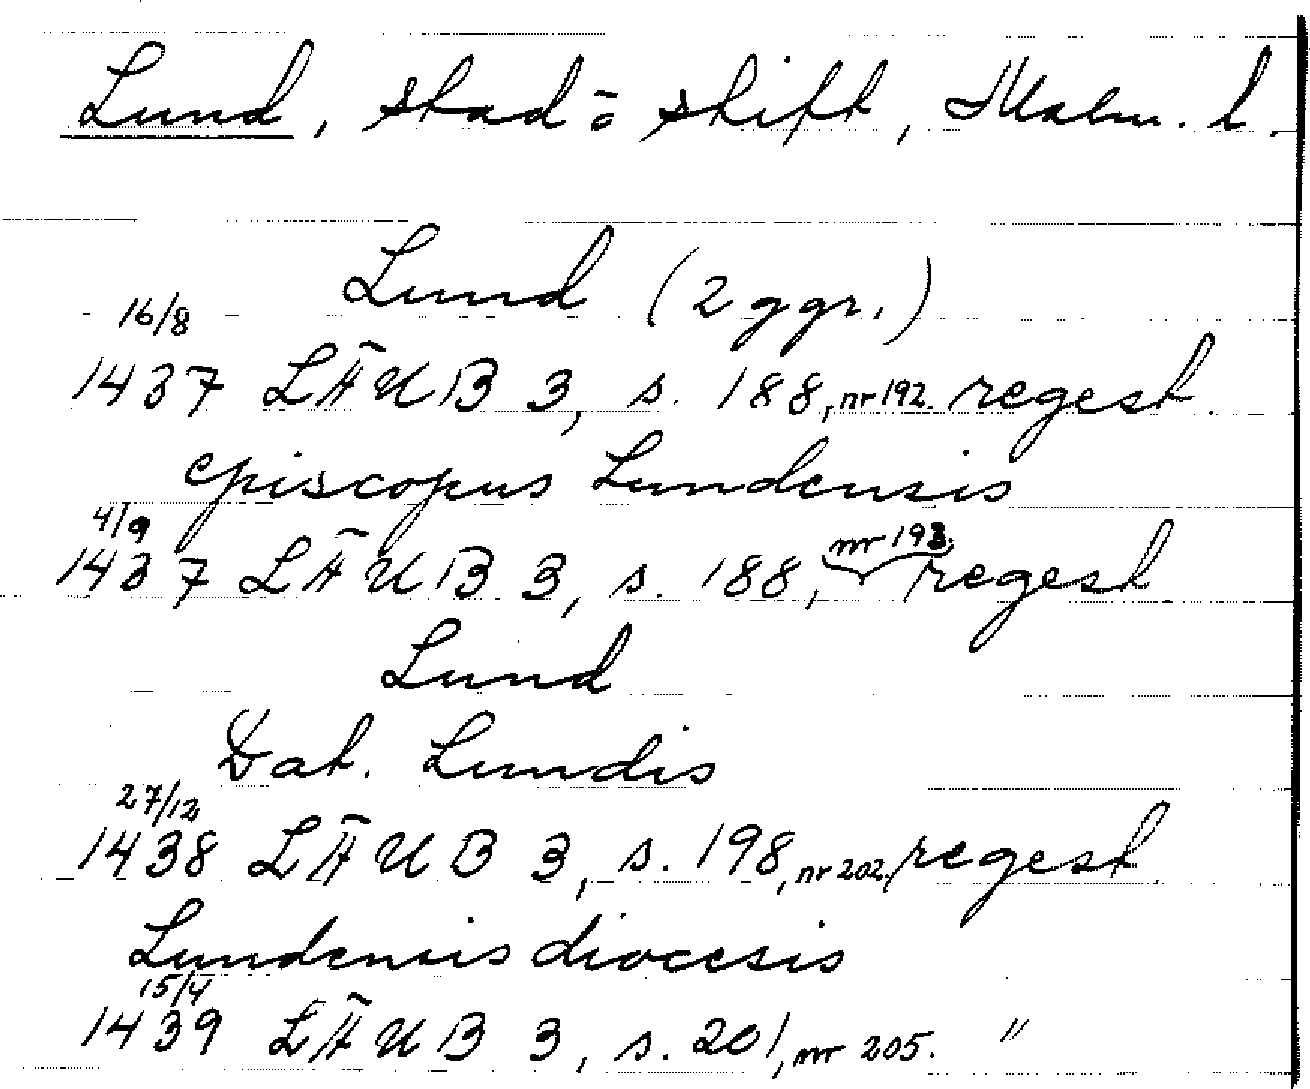 Lund, stad o. stift, Malm. l.
Lund (2 ggr.)
16/8
1437 LÄUB 3, s. 188, nr 192. regest
episcopus Lundensis
4/9
1437 LÄUB 3, s. 188, nr 193. regest
Lund
Dat. Lundis
27/12
1438 LÄUB 3, s. 198, nr 202. regest
Lundensis diocesis
15/4
1439 LÄUB 3, s. 201, nr 205. "